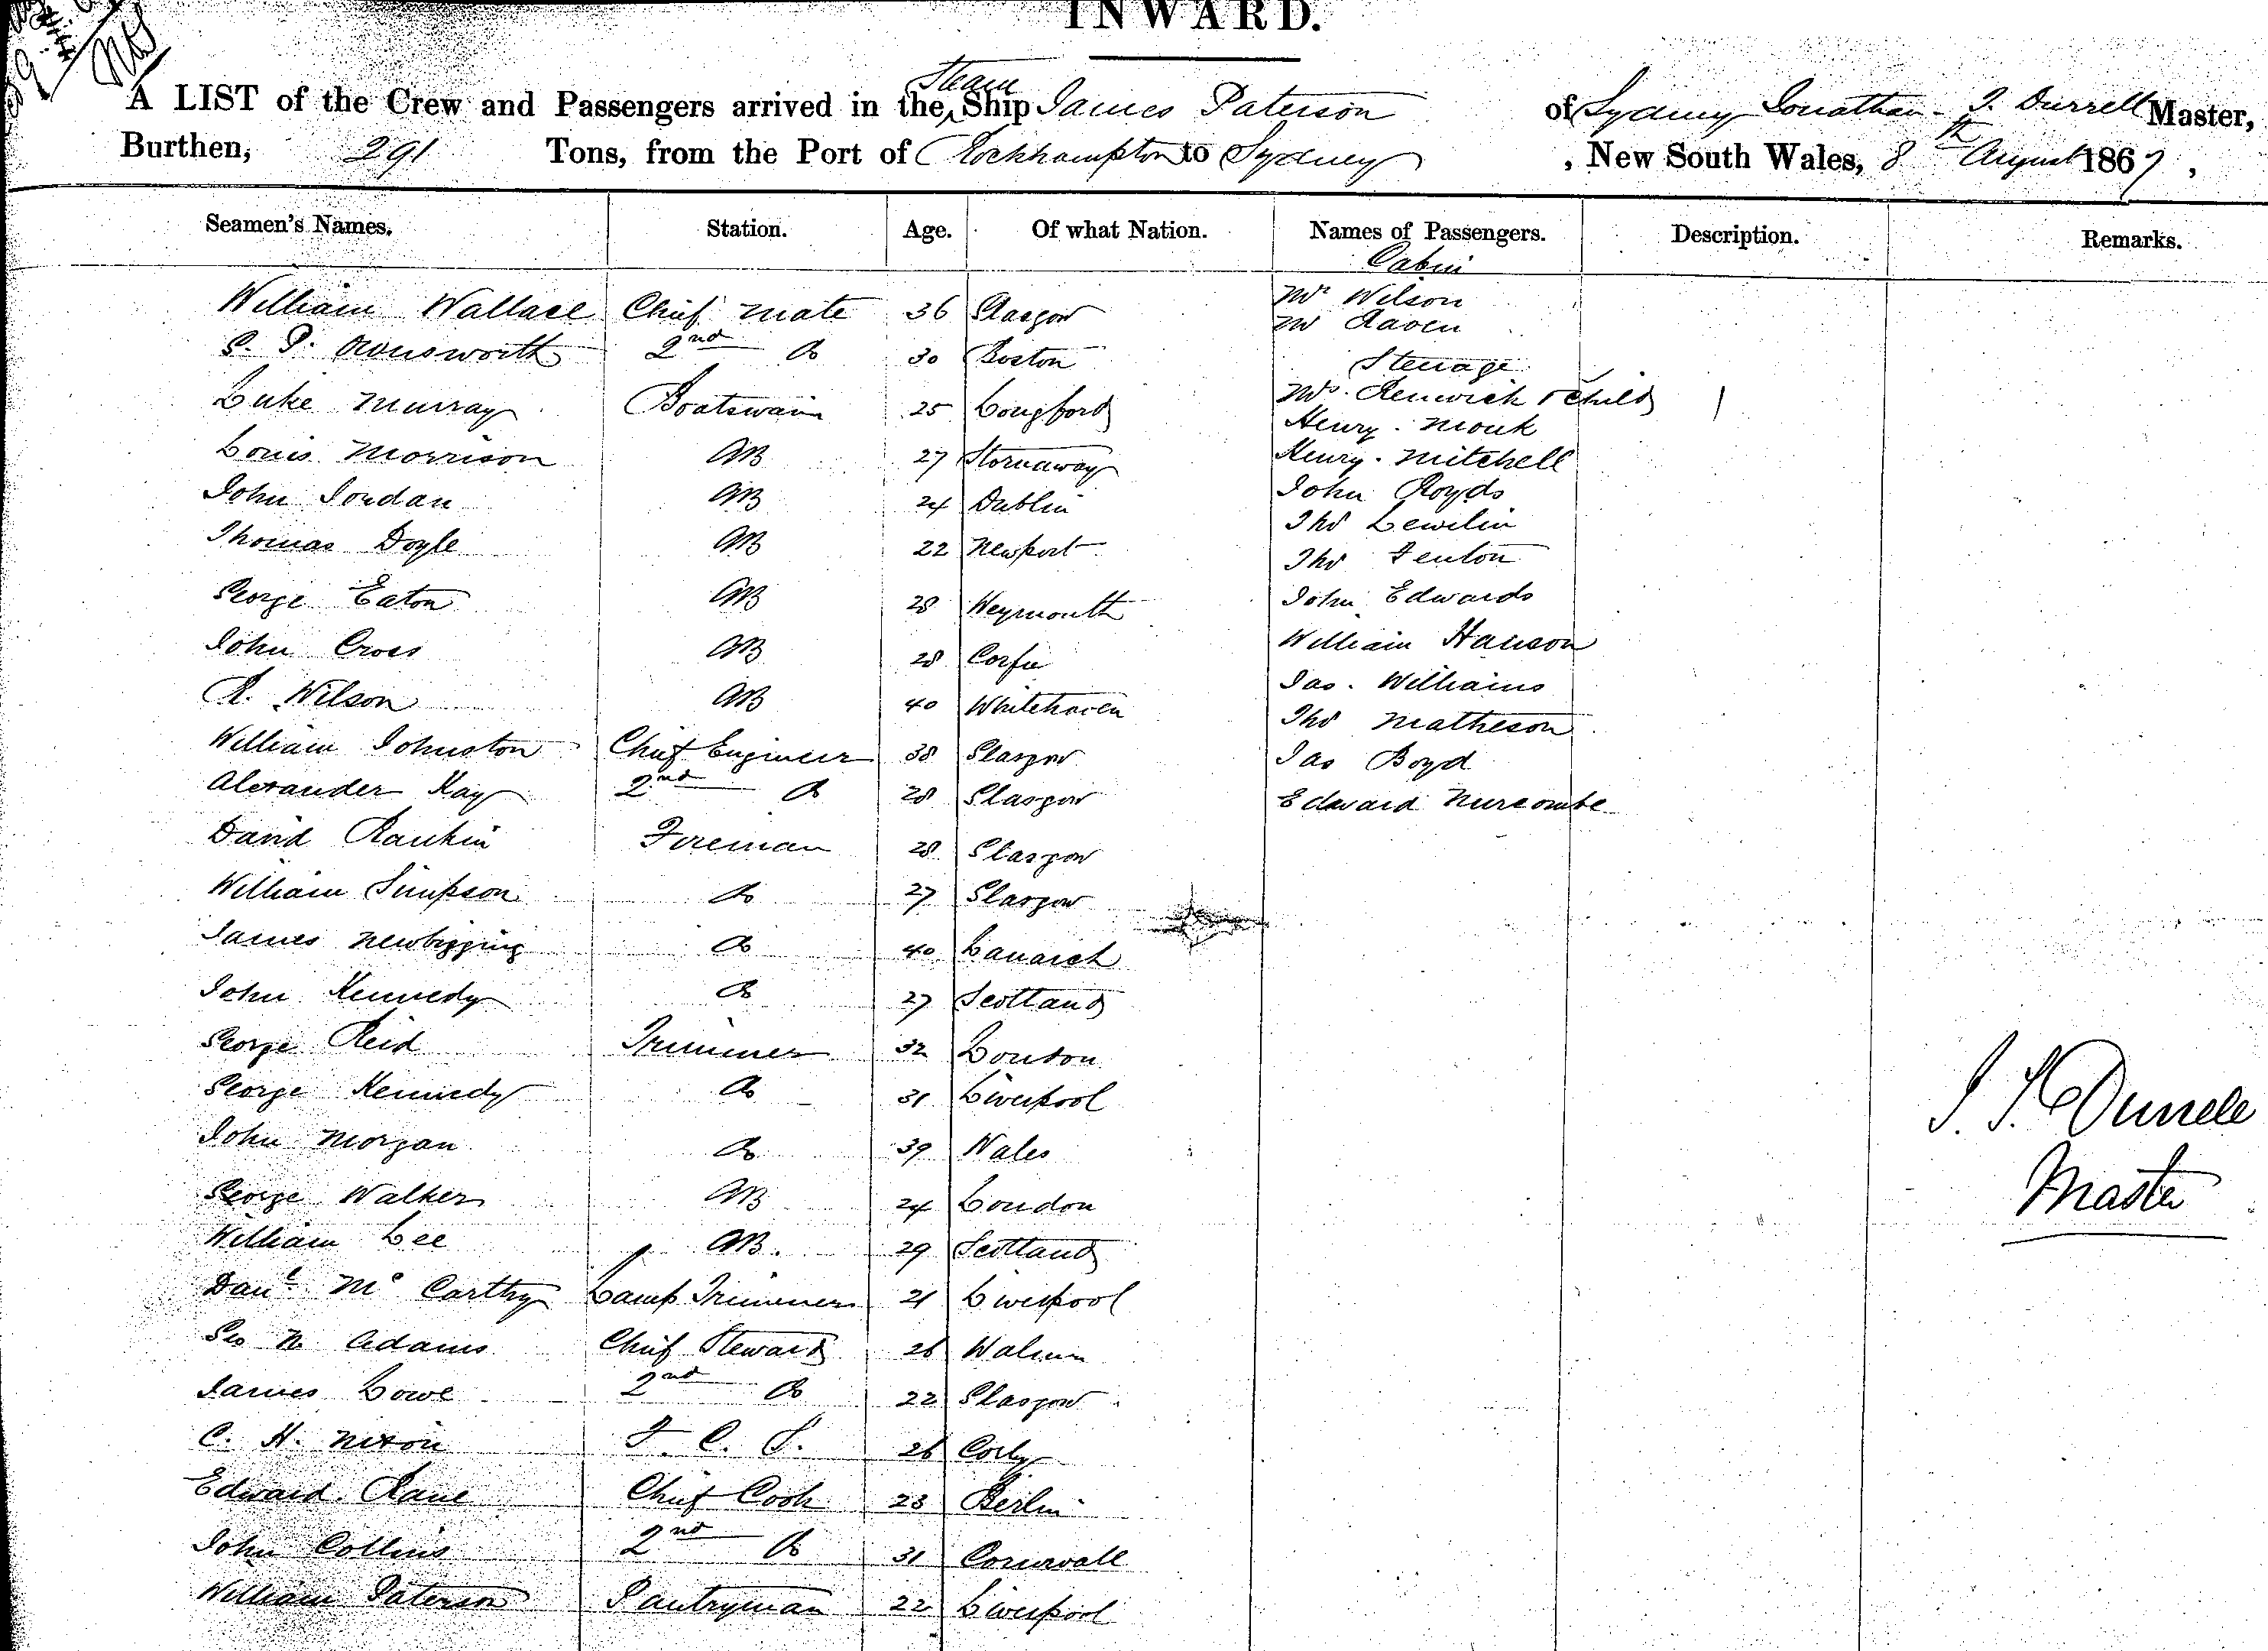 INWARD.
A LIST of the Crew and Passengers arrived in the Steam Ship James Paterson of Sydney Jonathan T. Durrell Master,
Burthen, 291 Tons, from the Port of Rockhampton to Sydney, New South Wales, 8th August 1867,
Seamen's Names. Station. Age. Of what Nation. Names of Passengers. Description. Remarks.
Cabin
William Wallace Chief Mate 36 Glasgow Mr Wilson
Mr Raven
2nd Do 30 Boston
Steerage
Luke Murray Boatswain 25 Longford Mrs. Renwick & Child 1
Henry. Monk
Louis Morrison AB 27 Stornaway Henry. Mitchell
John Jordan AB 24 Dublin John Royds
Thos Lewelin
Thomas Doyle AB 22 Newport Thos Fenton
George Eaton AB 28 Weymouth John Edwards
John Cross AB 28 Corfu William Hanson
R. Wilson AB 40 Whitehaven Jas. Williams
Thos Matheson
William Johnston Chief Engineer 38 Glasgow Jas Boyd
Alexander Kay 2nd Do 28 Glasgow Edward Nurcombe
David Rankin Fireman 28 Glasgow
William Simpson Do 27 Glasgow
James Newbigging Do 40 Lanark
John Kennedy Do 27 Scotland
George Reid Trimmer 32 London
George Kennedy Do 31 Liverpool
John Morgan Do 39 Wales
George Walker AB 24 London
William Lee AB. 29 Scotland
Danl McCarthy Lamp Trimmer 21 Liverpool
Geo N Adams Chief Steward 26
James Lowe 2nd Do 22 Glasgow
C. H. Nixon F. C. S. 26
Edward Rane Chief Cook 23 Berlin
John Collins 2nd Do 31 Cornwall
William Paterson Pantryman 22 Liverpool
J. T. Durrell
Master